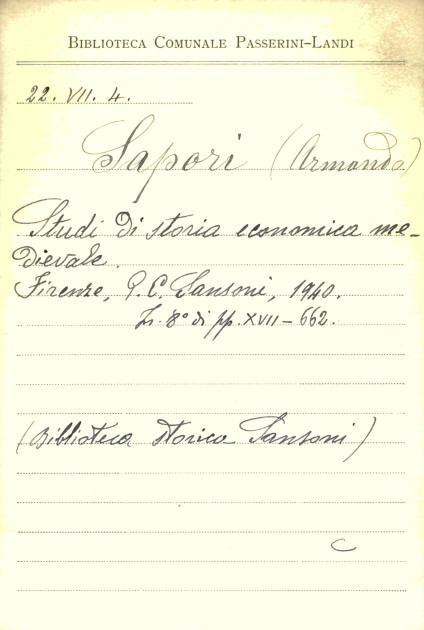 BIBLIOTECA COMUNALE PASSERINI-LANDI
22. VII. 4.
Sapori (Armando)
Studi di storia economica me-
dievale.
Firenze, G. C. Sansoni, 1940.
In-8° di pp. XVII-662.
(Biblioteca storica Sansoni)
C